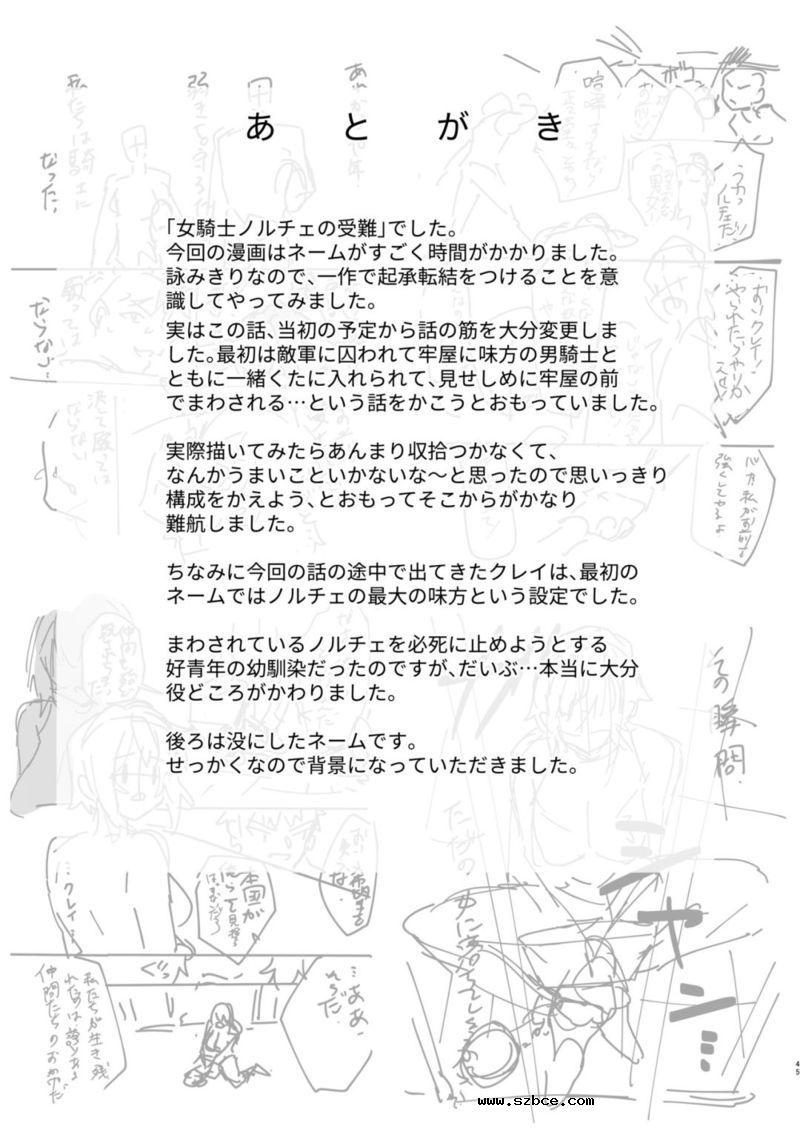 あとがき
「女騎士ノルチェの受難」でした。
今回の漫画はネームがすごく時間がかかりました。
詠みきりなので、一作で起承転結をつけることを意
識してやってみました。
実はこの話、当初の予定から話の筋を大分変更しま
した。最初は敵軍に囚われて牢屋に味方の男騎士と
ともに一緒くたに入れられて、見せしめに牢屋の前
でまわされる…という話をかこうとおもっていました。
実際描いてみたらあんまり収拾つかなくて、
なんかうまいこといかないな～と思ったので思いっきり
構成をかえよう、とおもってそこからがかなり
難航しました。
ちなみに今回の話の途中で出てきたクレイは、最初の
ネームではノルチェの最大の味方という設定でした。
まわされているノルチェを必死に止めようとする
好青年の幼馴染だったのですが、だいぶ…本当に大分
役どころがかわりました。
後ろは没にしたネームです。
せっかくなので背景になっていただきました。
私たちは騎士に
なった。
ならない…
おいクレイ！
その瞬間
…クレイ…
本国が
…ああ、
そうだ。
私たちが生き残
れたのは誇りある
仲間たちのおかげだ
45
www.szbce.com